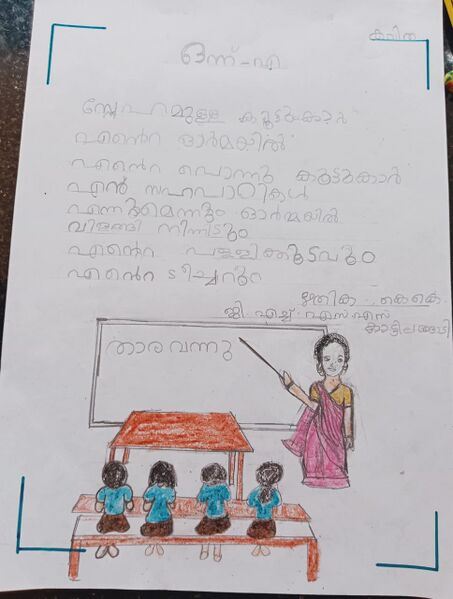 കവിത
ഒന്ന്-എ
സ്നേഹമുള്ള കൂട്ടുകാർ
എന്റെ ഓർമയിൽ
എന്റെ പൊന്നു കൂട്ടുകാർ
എൻ സഹപാഠികൾ
എന്നുമെന്നും ഓർമ്മയിൽ
വിളങ്ങി നിന്നിടും
എന്റെ പള്ളിക്കൂടവും
എന്റെ ടീച്ചറും
കെ കെ
ജി എച്ച് എസ് എസ്
കാട്ടിലങ്ങാടി
താര വന്നു